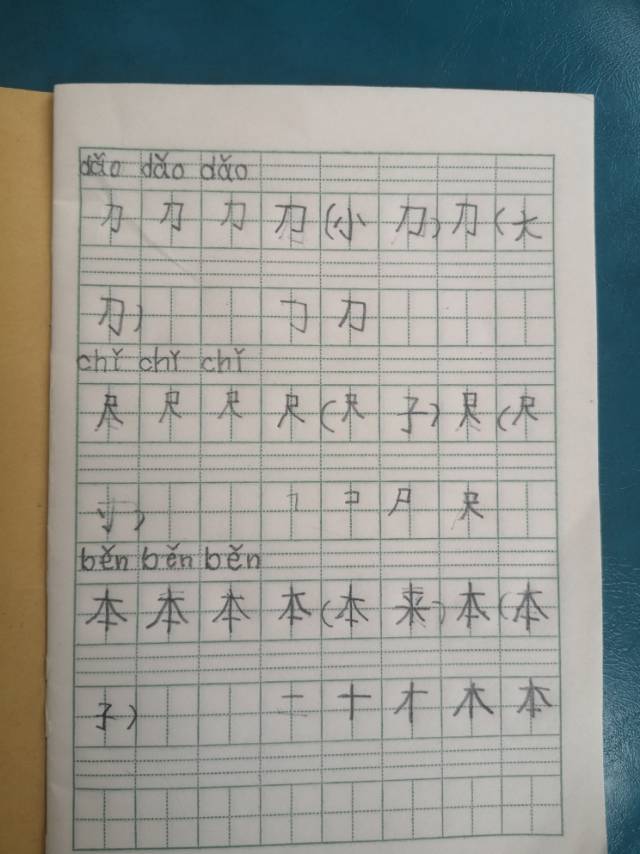 dǎo dǎo dǎo
刀 刀 刀 刀(小 刀)刀(大
刀) 𠃌 刀
chǐ chǐ chǐ
尺 尺 尺 尺(尺 子)尺(尺
寸) ㇕ コ 尸 尺
běn běn běn
本 本 本 本(本 来)本(本
子) 一 十 才 木 本